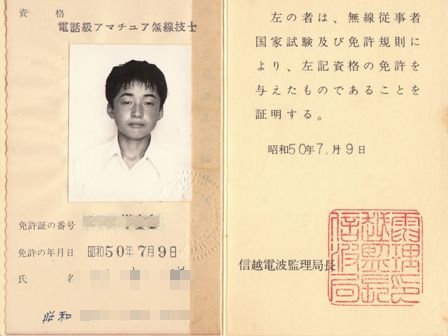 資格
電話級アマチュア無線技士
免許証の番号
免許の年月日 昭和50年7月9日
氏名
昭和
左の者は、無線従事者
国家試験及び免許規則
により、左記資格の免許を
与えたものであることを
証明する。
昭和50年7.月9日
信越電波監理局長